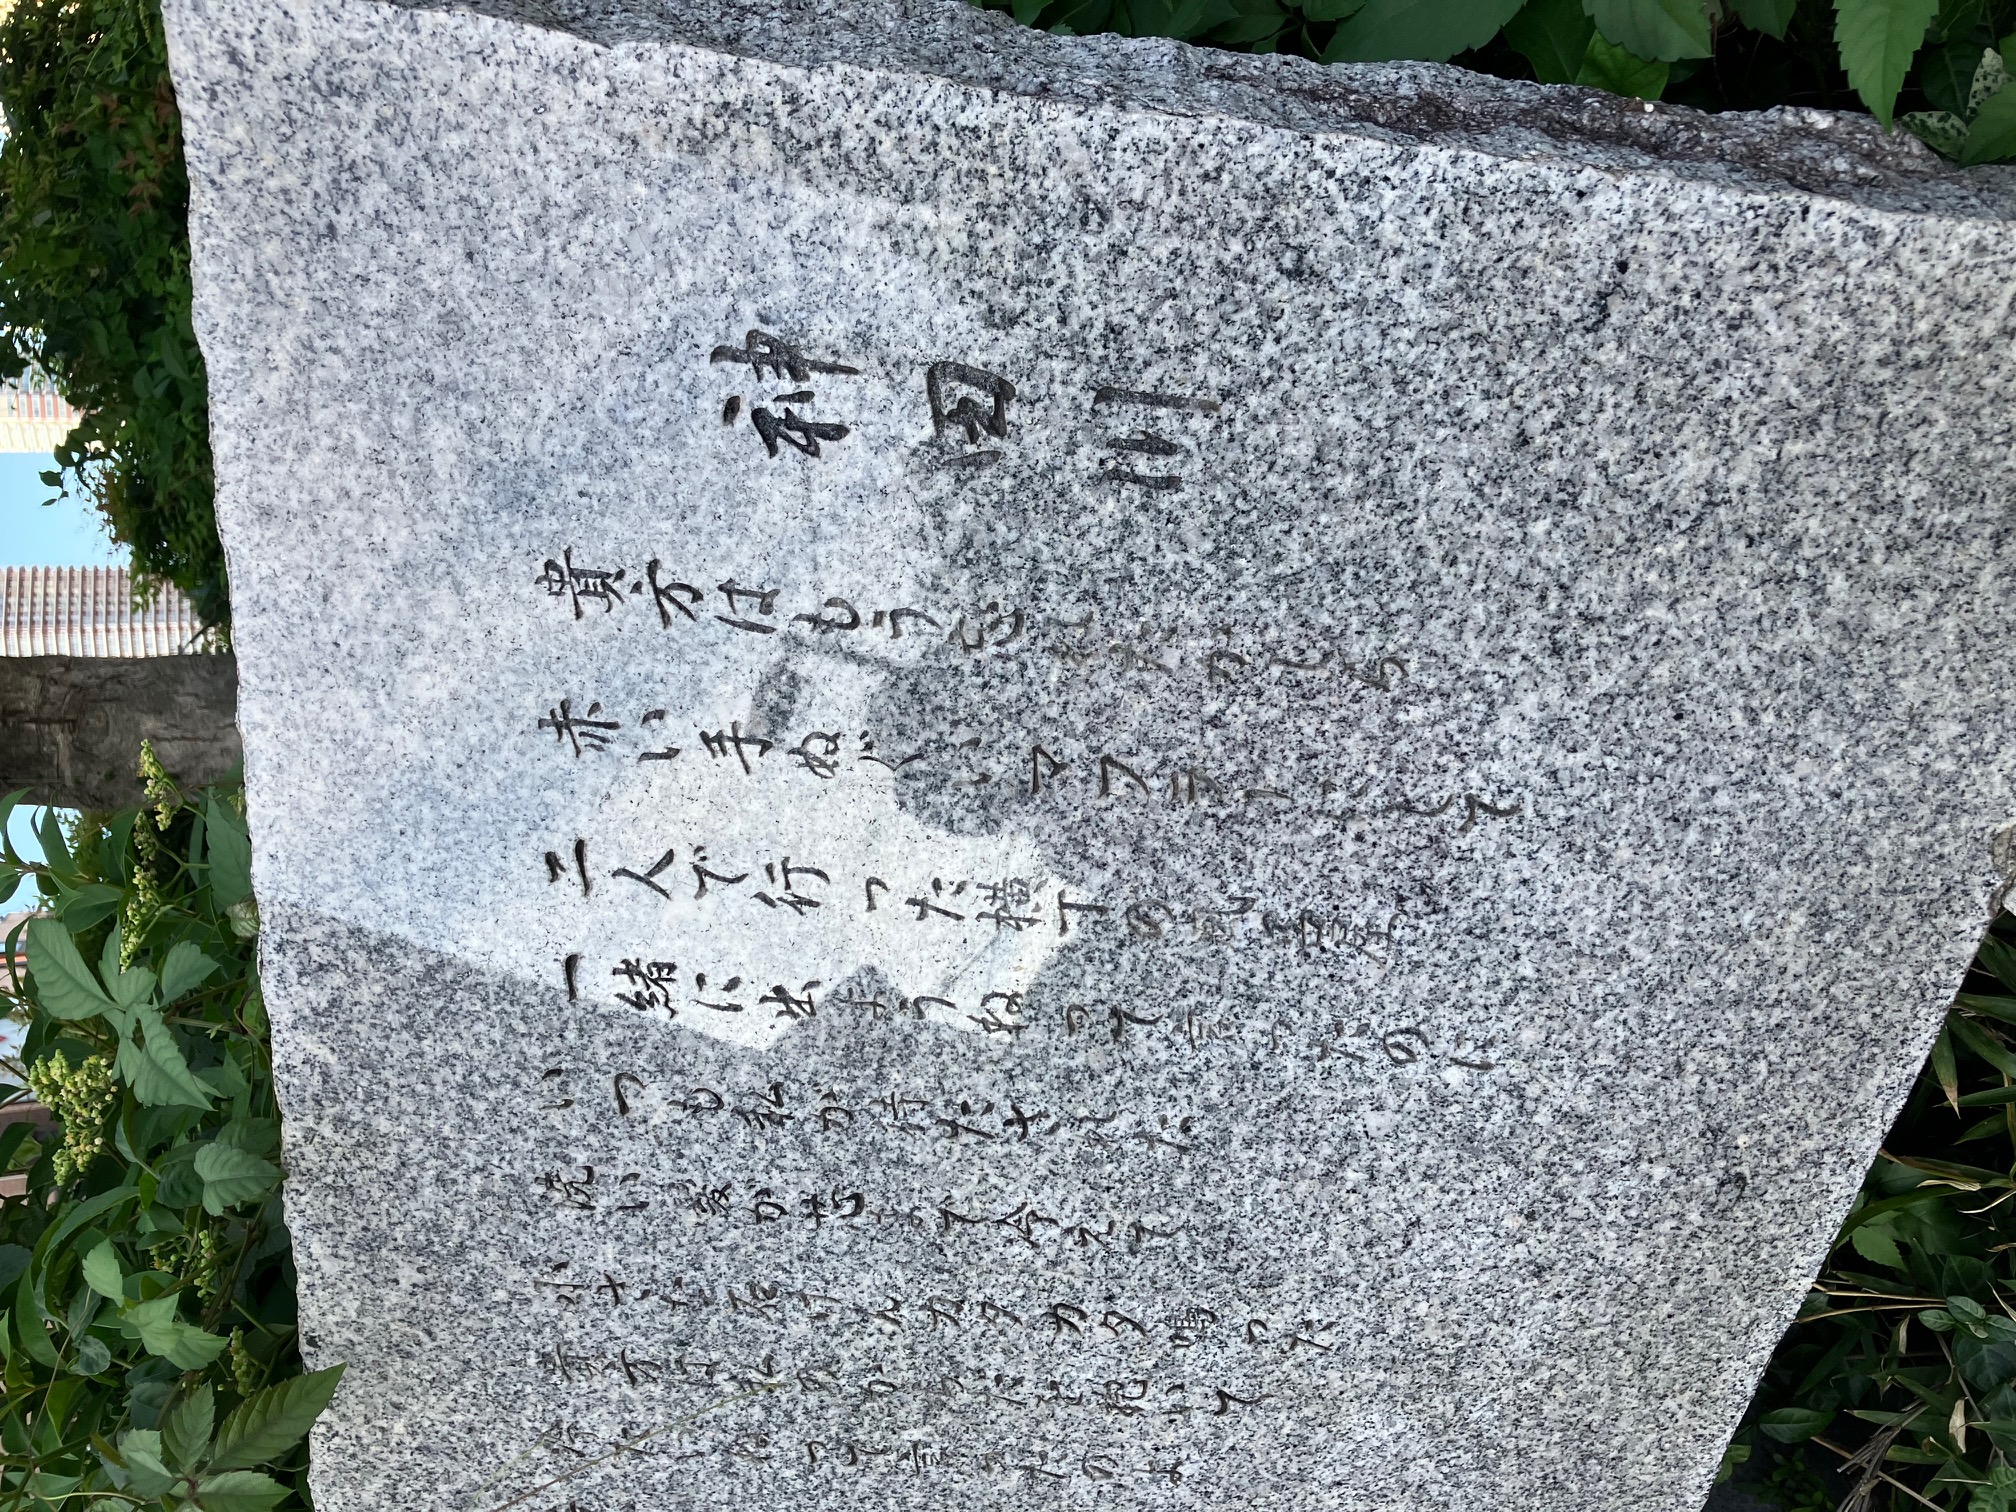 神田川
貴方はもう忘れたかしら
赤い手ぬぐいマフラーにして
二人で行った横丁の風呂屋
一緒に出ようねって言ったのに
いつも私が待たされた
洗い髪が芯まで冷えて
小さな石けんカタカタ鳴った
貴方は私のからだを抱いて
冷たいねって言ったのよ